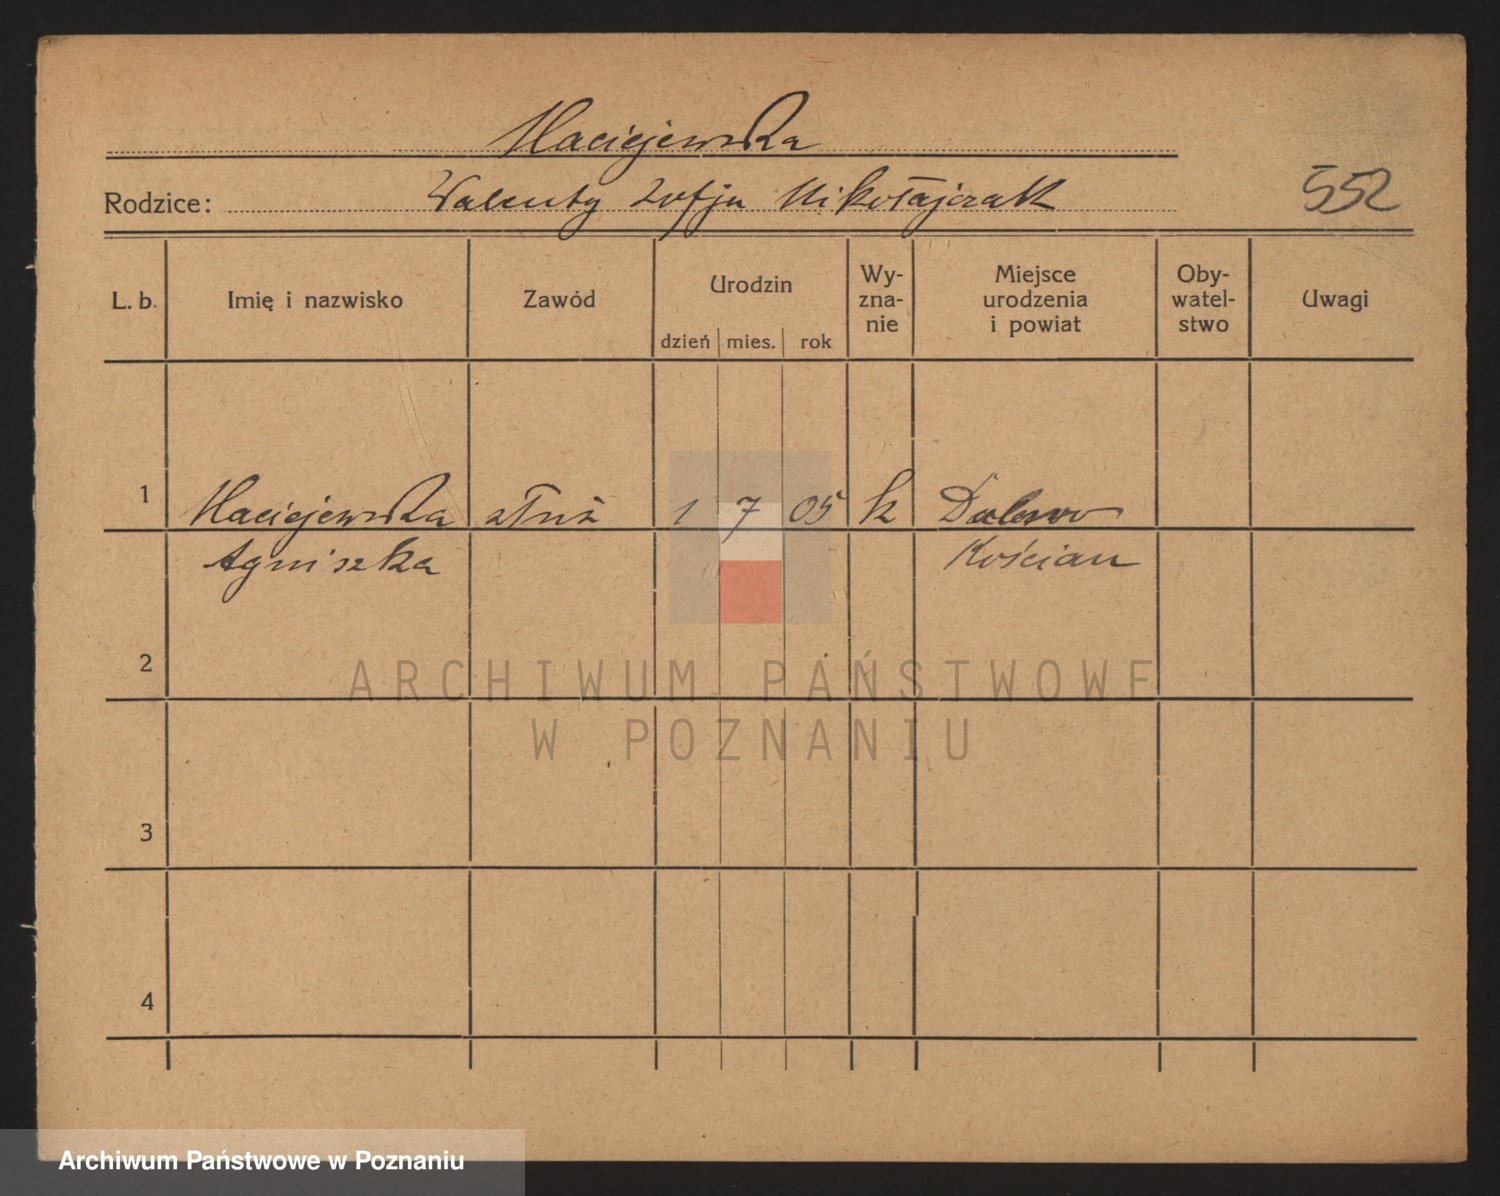 Maciejewska
Rodzice: Walenty Zofja Mikołajczak 552
L. b. Imię i nazwisko Zawód Urodzin dzień mies. rok Wy-zna-nie Miejsce urodzenia i powiat Oby-watel-stwo Uwagi
1 Maciejewska służ 1 7 05 k
Agniszka Kościan
2
ARCHIWUM PAŃSTWOWE
W POZNANIU
3
4
Archiwum Państwowe w Poznaniu